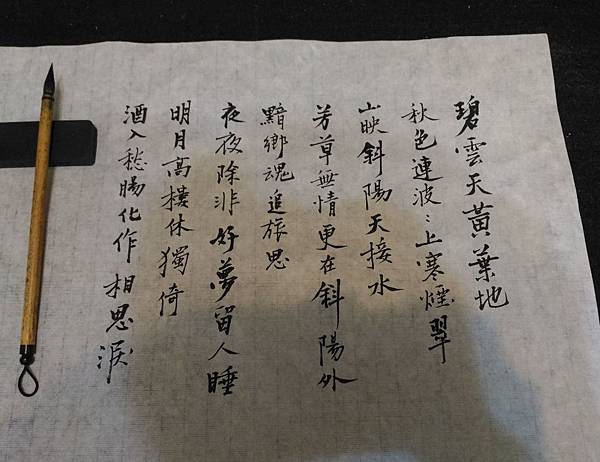 碧雲天黃葉地
秋色連波〻上寒煙翠
山映斜陽天接水
芳草無情更在斜陽外
黯鄉魂追旅思
夜夜除非好夢留人睡
明月高樓休獨倚
酒入愁腸化作相思淚